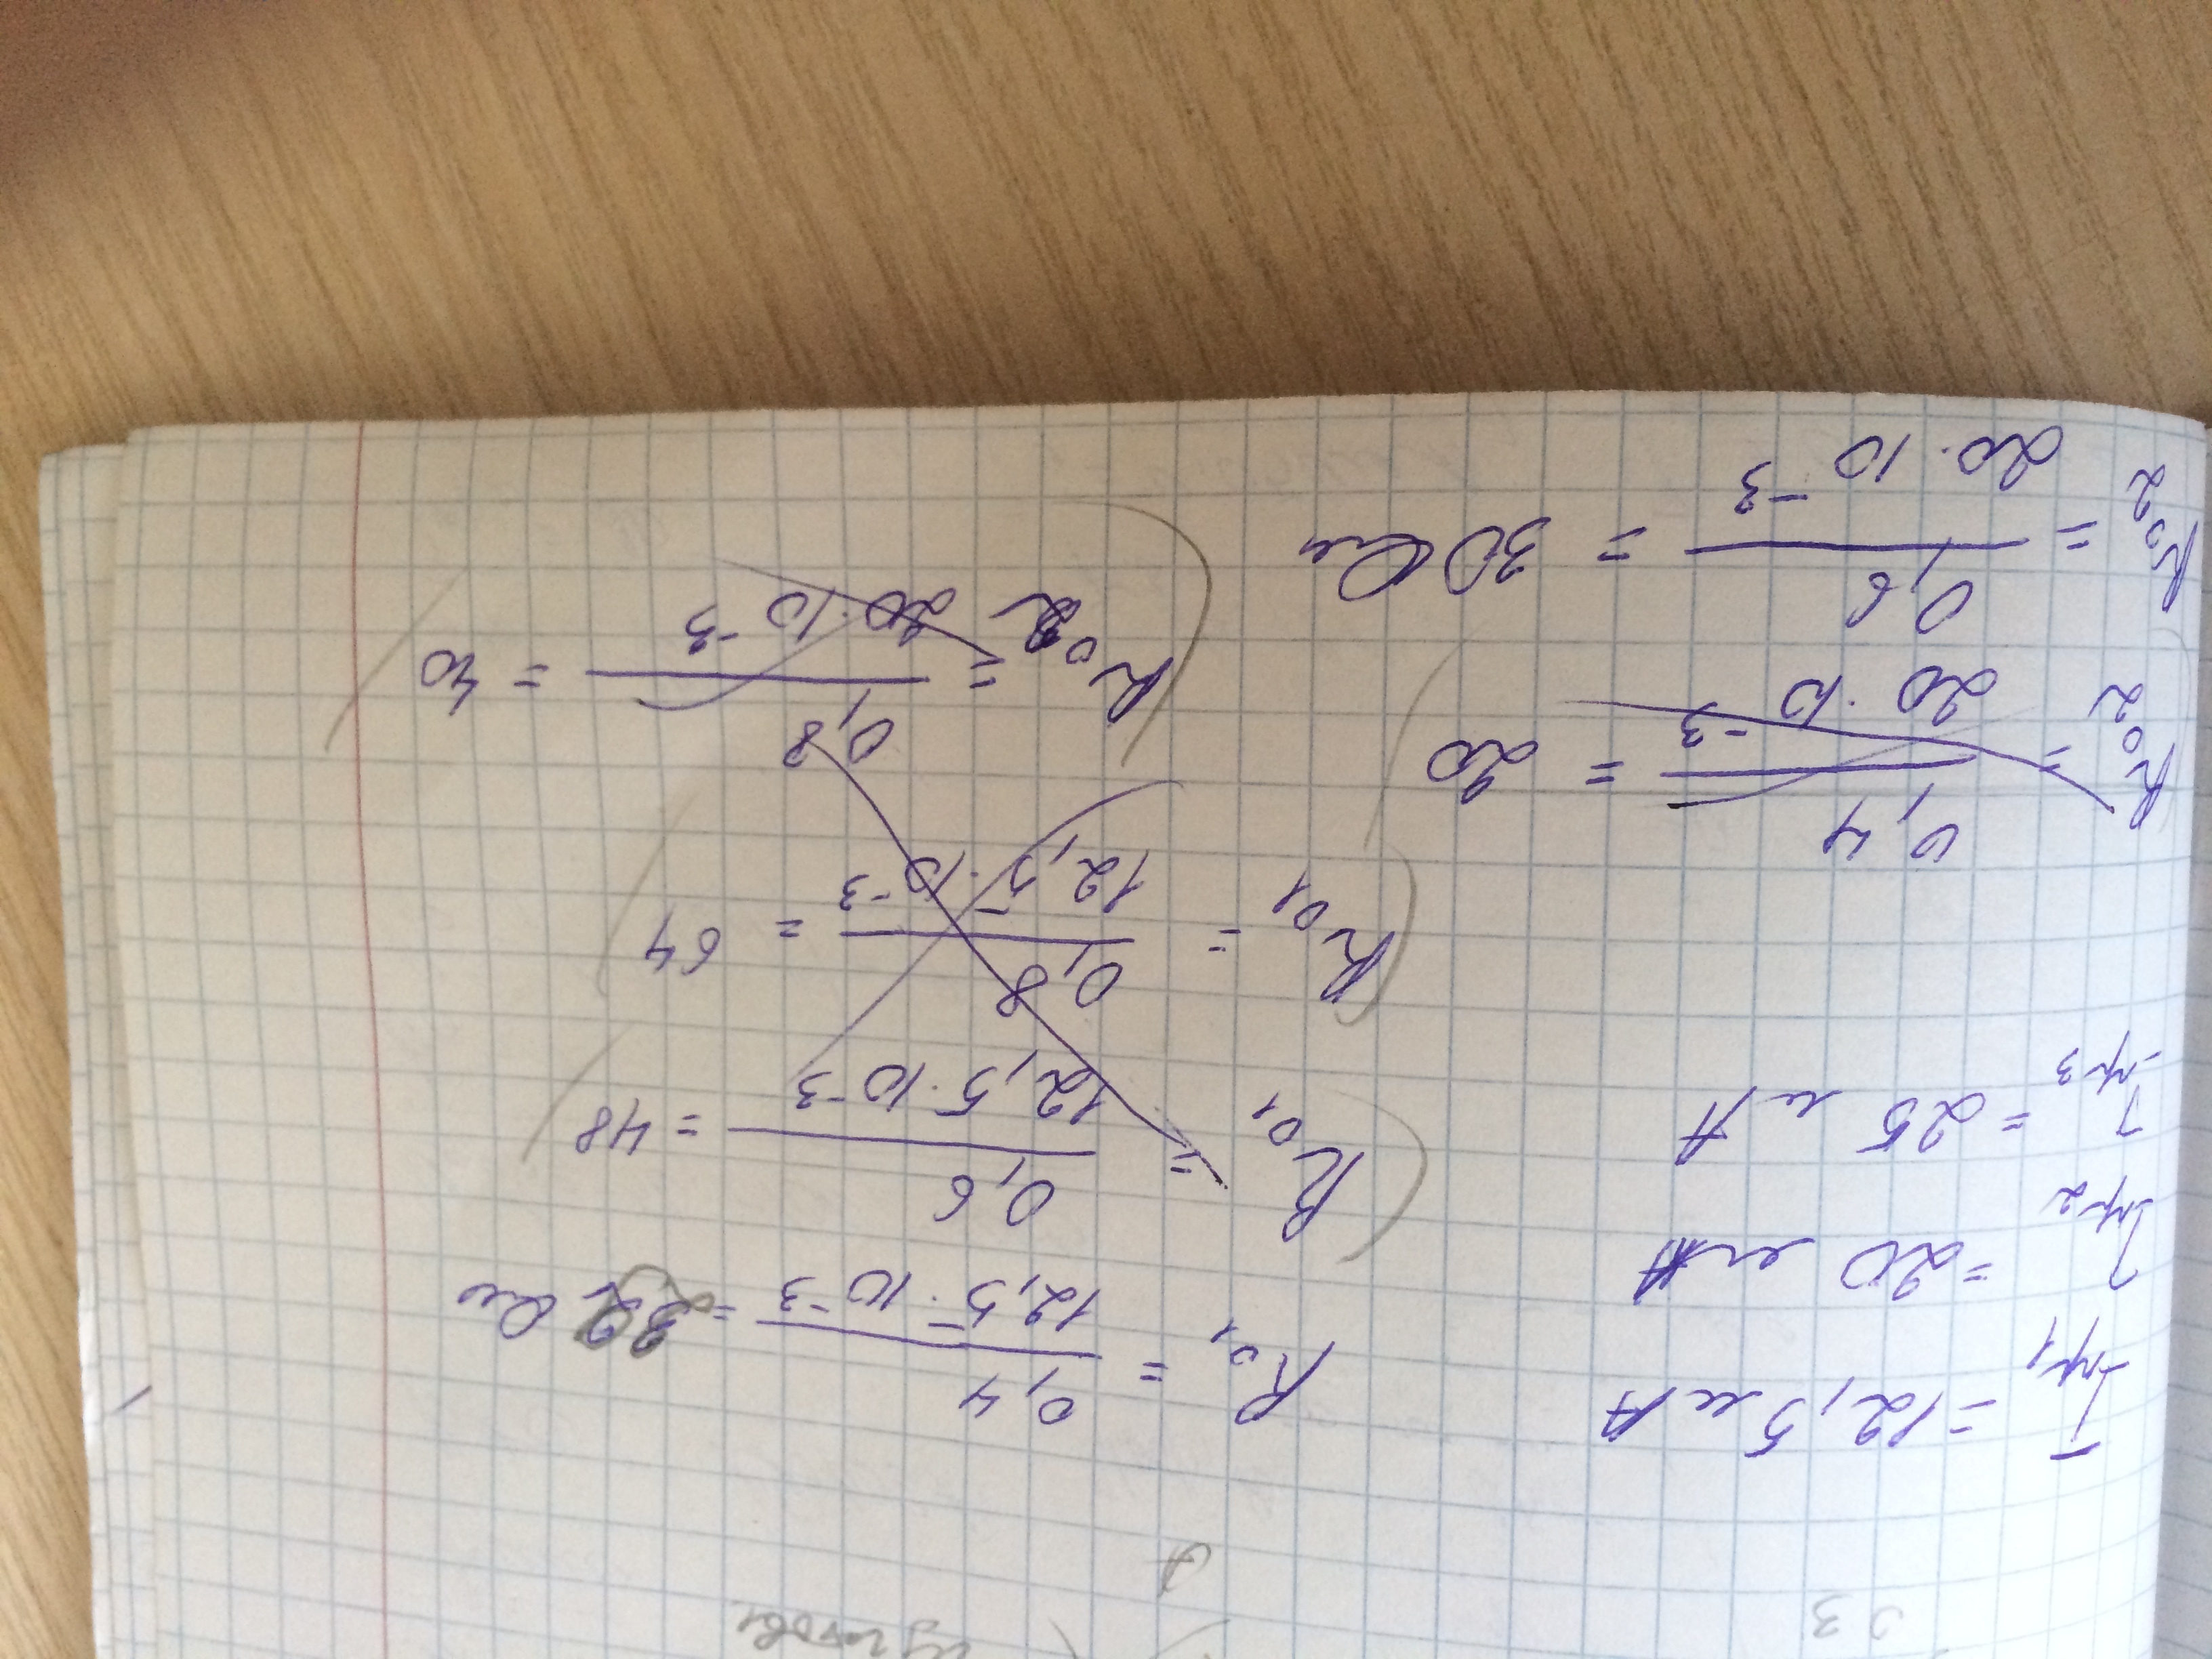 I пр1 = 12,5 мА
I пр2 = 20 мА
I пр3 = 25 мА
R01 = 0,4 / 12,5 · 10^-3 = 32 Ом
R01 = 0,6 / 12,5 · 10^-3 = 48
R01 = 0,8 / 12,5 · 10^-3 = 64
R02 = 0,8 / 20 · 10^-3 = 40
R02 = 0,4 / 20 · 10^-3 = 20
R02 = 0,6 / 20 · 10^-3 = 30 Ом